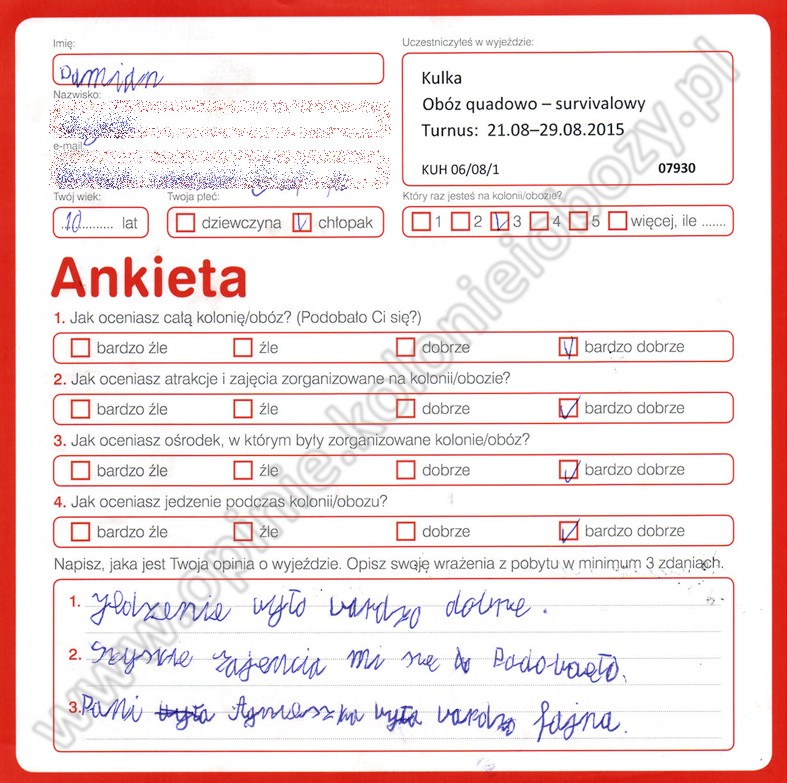 Imię:
Uczestniczyłeś w wyjeździe:
Damian
Kulka
Obóz quadowo – survivalowy
Turnus: 21.08–29.08.2015
KUH 06/08/1 07930
Nazwisko:
e-mail
Twój wiek:
Twoja płeć:
Który raz jesteś na kolonii/obozie?
10 lat
dziewczyna chłopak
1 2 3 4 5 więcej, ile .......
Ankieta
1. Jak oceniasz całą kolonię/obóz? (Podobało Ci się?)
bardzo źle źle dobrze bardzo dobrze
2. Jak oceniasz atrakcje i zajęcia zorganizowane na kolonii/obozie?
bardzo źle źle dobrze bardzo dobrze
3. Jak oceniasz ośrodek, w którym były zorganizowane kolonie/obóz?
bardzo źle źle dobrze bardzo dobrze
4. Jak oceniasz jedzenie podczas kolonii/obozu?
bardzo źle źle dobrze bardzo dobrze
Napisz, jaka jest Twoja opinia o wyjeździe. Opisz swoję wrażenia z pobytu w minimum 3 zdaniach.
1. Jedzenie było bardzo dobre.
2. zajencia mi sie Podobało.
3. Pani Agnieszka była bardzo fajna.
www.opinie.kolonieiobozy.pl